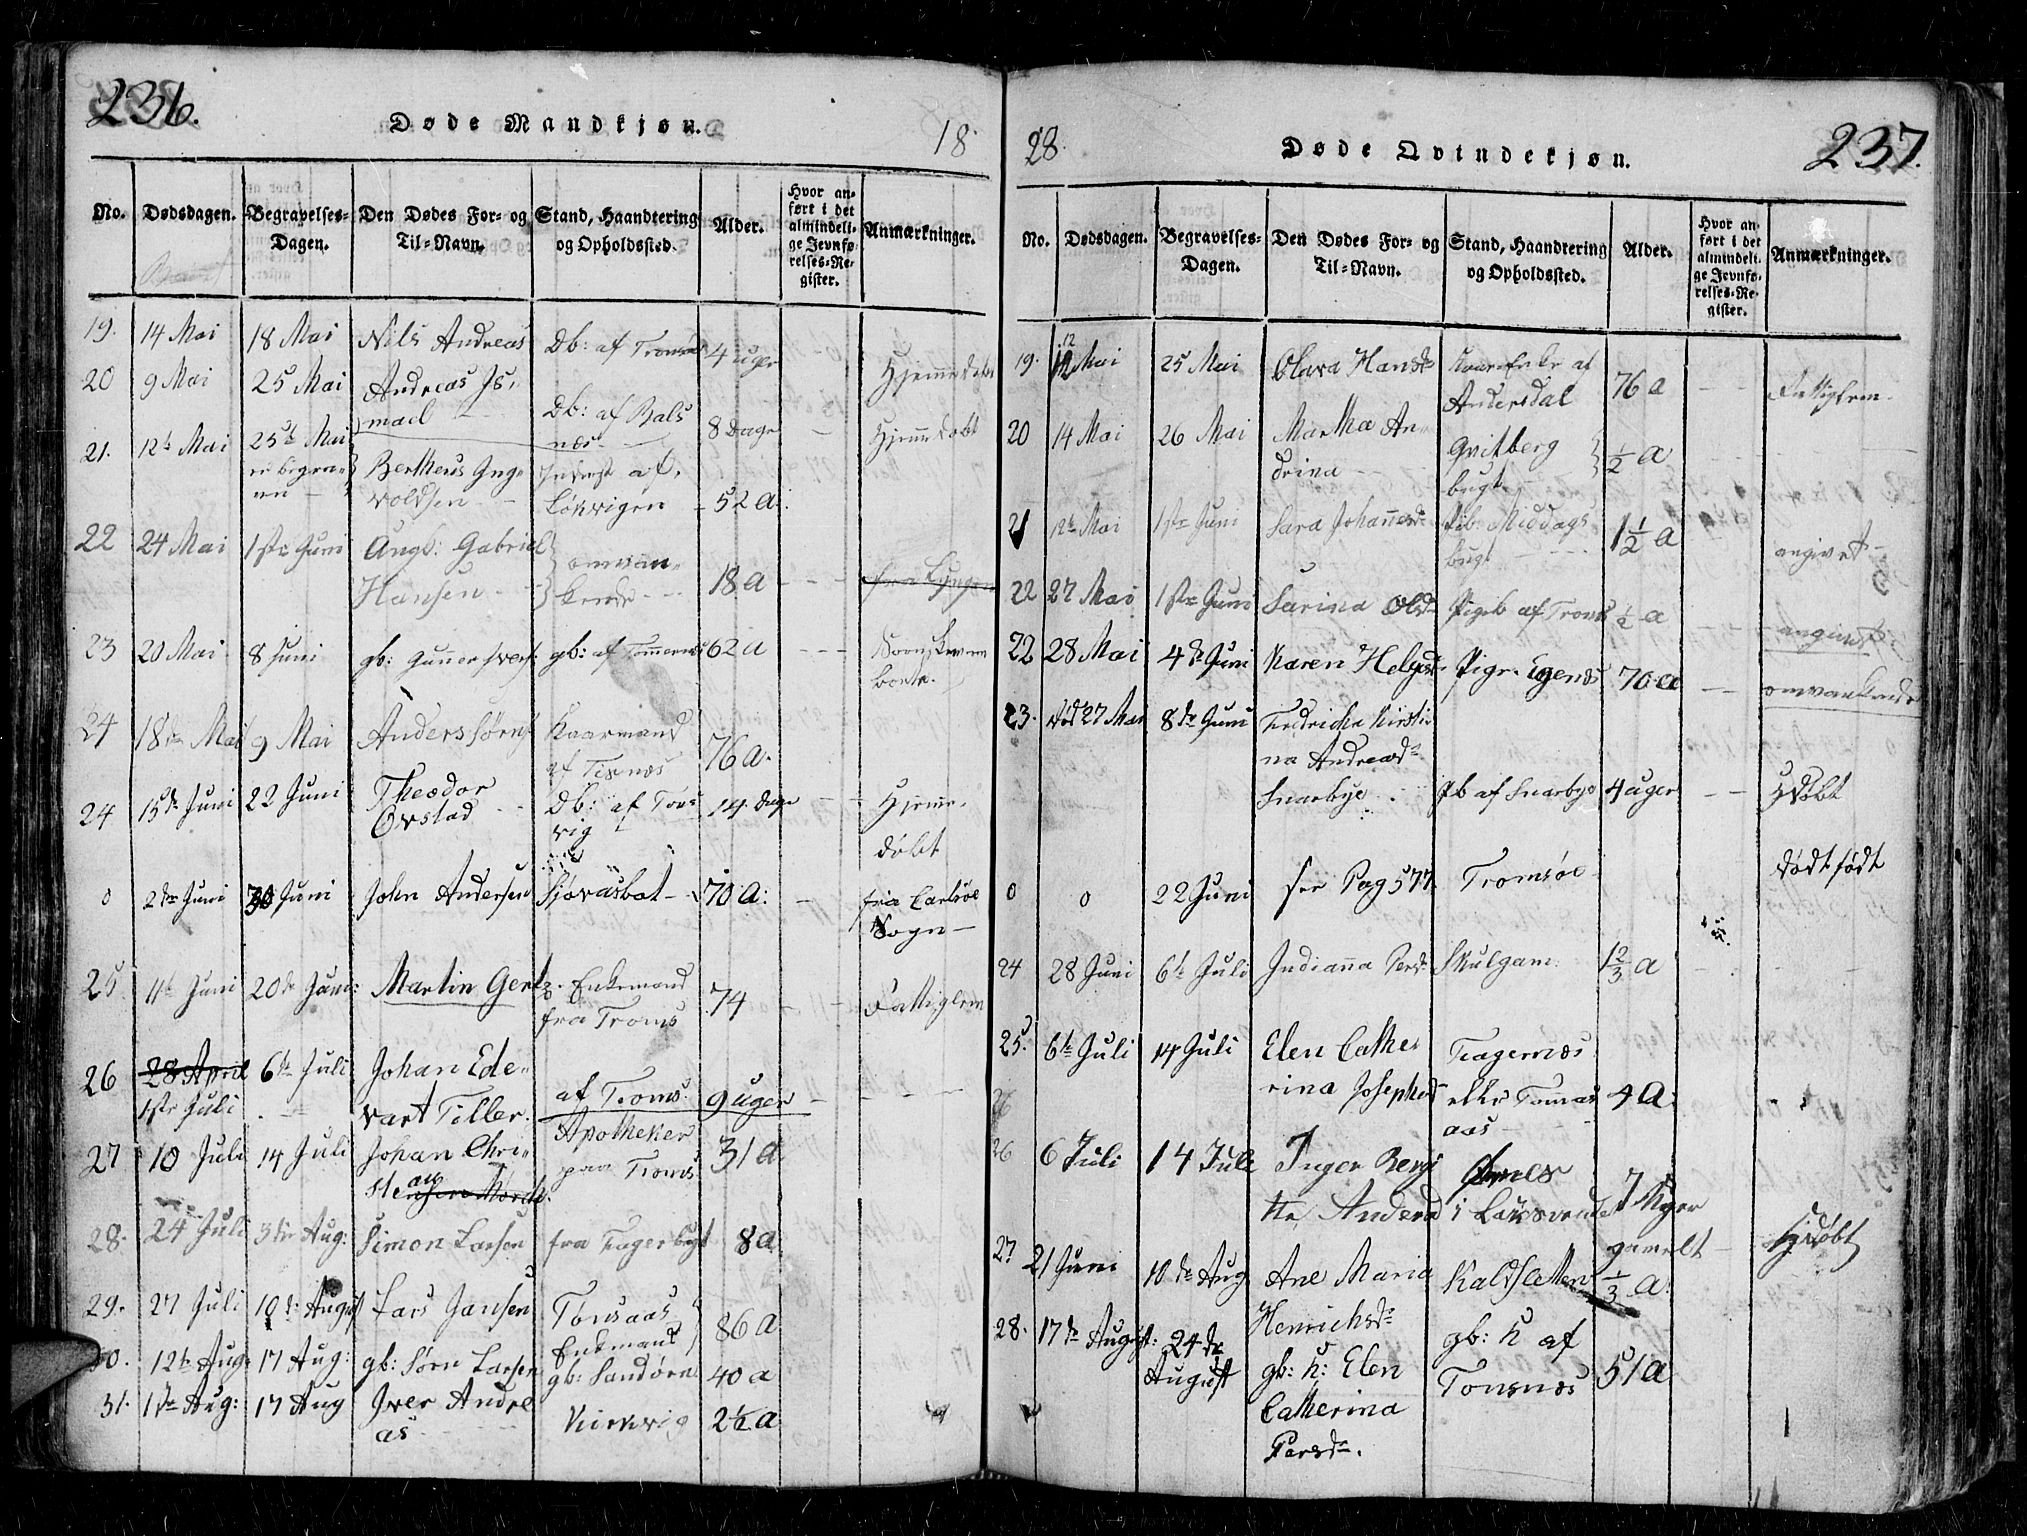 236.
Døde Mandkjøn.
18
No. Dødsdagen. Begravelses-Dagen. Den Dødes For- og Til-Navn. Stand, Haandtering og Opholdssted. Alder. Hvor anført i det almindelige Jevnførelses-Register. Anmærkninger.
19. 14 Mai 18 Mai Nils Andreas Db: af Tromsøe 4 uger Hjemedøbt
20 9 Mai 25 Mai Andreas Ismael Db: af Balsnæs 8 Dage Hjemedøbt
21. 12te Mai 25te Mai Bertheus Ingevoldsen Inderst af Løkvigen 52 a:
22 24 Mai 1ste Juni Ungk: Gabriel Hansen omvankende 18 a fra Lyngen
23 20 Mai 8 Juni gb: Gunner Iversf: gb: af Tommernes 62 a
24 18de Mai 9 Mai Anders Sørens Kaarmand af Tisnæs 76 a.
24 15de Juni 22 Juni Theodor Evstad Db: af Tønsvig 14 Dage Hjemedøbt
0 2den Juni 30 Juni John Andersen Sjøvasbot 70 a: fra Carlsøe Sogn
25 11te Juni 20de Juni: Martin Gertz Enkemand fra Troms 74 Fattiglem
26 28 April 1ste Juli 6te Juli Johan Edevart Tiller. af Troms: 9 uger
27 10 Juli 14 Juli Johan Christensen Mørch. Apotheker paa Troms: 31 a
28. 24 Juli 3die Aug: Simon Larsen fra Fagerbugt 8 a
29. 27 Juli 10de August Lars Jansen Tønsaas Enkmand 86 a
30. 12te Aug: 17 Aug: gb: Sørn Larsen gb: Sandørn 40 a
31. 1ste Aug: 17 Aug Iver Andreas Kirkvig 2½ a
28.
Døde Qvindekjøn.
237.
No. Dødsdagen. Begravelses-Dagen. Den Dødes For- og Til-Navn. Stand, Haandtering og Opholdssted. Alder. Hvor anført i det almindelige Jevnførelses-Register. Anmærkninger.
19. 12 Mai 25 Mai Olava Hansd Kaar Enke af Andersdal 76 a Fattiglem
20 14 Mai 26 Mai Martha Andrina Qvitbergbugt ½ a
21 12te Mai 1ste Juni Sara Johannesd Pib: Middagsbugt 1½ a angivet
22 27 Mai 1ste Juni Sarina Olsd Pigeb af Troms ½ a angivet
22 28 Mai 4de Juni Karen Helgesd Pige 70 a omvankende
23. død 27 Mai 8de Juni Fredricka Kirstina Andreasd Snarbye Pb af Snarbye 4 uger Hdøbt
0 0 22 Juni see Pag 577 Tromsøe dødtfødt
24 28 Juni 6te Juli Indianna Persd Skulgam 1⅔ a
25. 6te Juli 14 Juli Elen Catherina Josephsd Fagernæs eller Tomasaas 4 a
26 6 Juli 14 Juli Inger Bergitte Andersd i Laksvandet 7 Uger gamelt Hjdøbt
27 21 Juni 10de Aug Ane Maria Henrichsd Kaldsletten ⅓ a:
28. 17de August: 24de August gb: K: Elen Catherina Parsd. gb: K af Tonsnæs 51 a